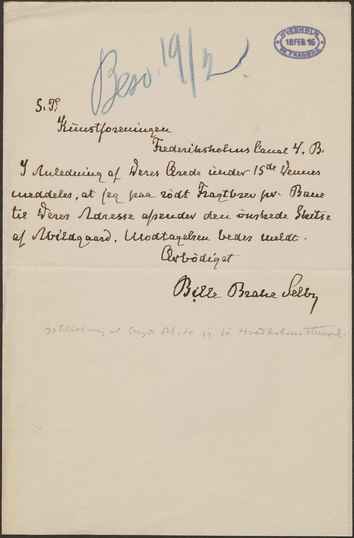 HVEDHOLM
18 FEB. 96
PR. FAABORG
Besv. 19/2.
S. T.
Kunstforeningen
Frederiksholms Canal 4. B.
I Anledning af Deres Ærede under 15de dennes
meddeles, at jeg paa rødt Fragtbrev pr. Bane
til Deres Adresse afsender den ønskede Skitse
af Abildgaard. Modtagelsen bedes meldt.
Ærbödigst
Bille Brahe Selby